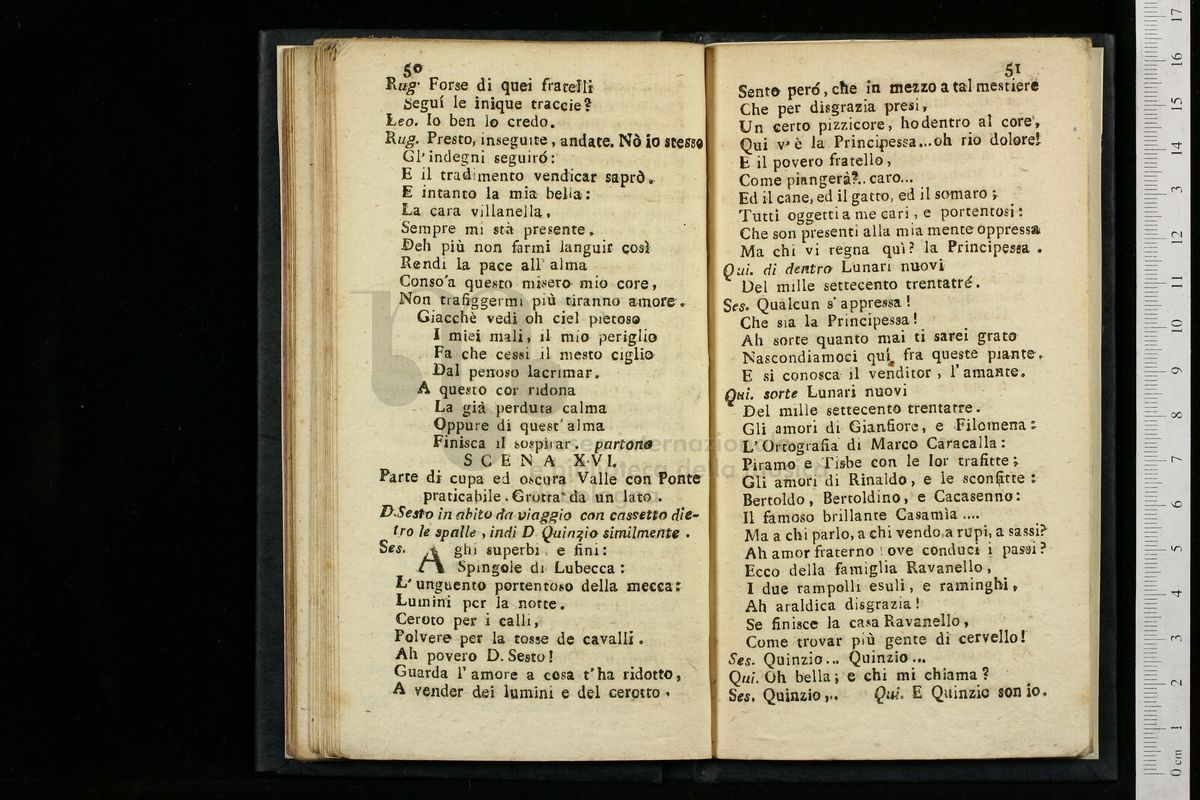 50
Rug. Forse di quei fratelli
Seguí le inique traccie?
Leo. Io ben lo credo.
Rug. Presto, inseguite, andate. Nò io stesso
Gl' indegni seguiró:
E il tradimento vendicar saprò.
E intanto la mia bella:
La cara villanella,
Sempre mi stà presente.
Deh più non farmi languir così
Rendi la pace all' alma
Conso'a questo misero mio core,
Non trafiggermi più tiranno amore.
Giacchè vedi oh ciel pietoso
I miei mali, il mio periglio
Fa che cessi il mesto ciglio
Dal penoso lacrimar.
A questo cor ridona
La già perduta calma
Oppure di quest' alma
Finisca il sospirar. partono
SCENA XVI.
Parte di cupa ed oscura Valle con Ponte
praticabile. Grotta da un lato.
D.Sesto in abito da viaggio con cassetto die-
tro le spalle, indi D Quinzio similmente.
Ses. Aghi superbi e fini:
Spingole di Lubecca:
L' unguento portentoso della mecca:
Lumini per la notte.
Ceroto per i calli,
Polvere per la tosse de cavalli.
Ah povero D. Sesto!
Guarda l' amore a cosa t'ha ridotto,
A vender dei lumini e del cerotto,
51
Sento peró, che in mezzo a tal mestiere
Che per disgrazia presi,
Un certo pizzicore, ho dentro al core,
Qui v' è la Principessa...oh rio dolore!
E il povero fratello,
Come piangerà?.. caro...
Ed il cane, ed il gatto, ed il somaro;
Tutti oggetti a me cari, e portentosi:
Che son presenti alla mia mente oppressa
Ma chi vi regna quì? la Principessa.
Qui. di dentro Lunari nuovi
Del mille settecento trentatré.
Ses. Qualcun s' appressa!
Che sia la Principessa!
Ah sorte quanto mai ti sarei grato
Nascondiamoci quí fra queste piante.
E si conosca il venditor, l' amante.
Qui. sorte Lunari nuovi
Del mille settecento trentatre.
Gli amori di Gianfiore, e Filomena:
L' Ortografia di Marco Caracalla:
Piramo e Tisbe con le lor trafitte;
Gli amori di Rinaldo, e le sconfitte:
Bertoldo, Bertoldino, e Cacasenno:
Il famoso brillante Casamìa ....
Ma a chi parlo, a chi vendo a rupi, a sassi?
Ah amor fraterno! ove conduci i passi?
Ecco della famiglia Ravanello,
I due rampolli esuli, e raminghi,
Ah araldica disgrazia!
Se finisce la casa Ravanello,
Come trovar più gente di cervello!
Ses. Quinzio... Quinzio...
Qui. Oh bella; e chi mi chiama?
Ses. Quinzio,.. Qui. E Quinzio son io.